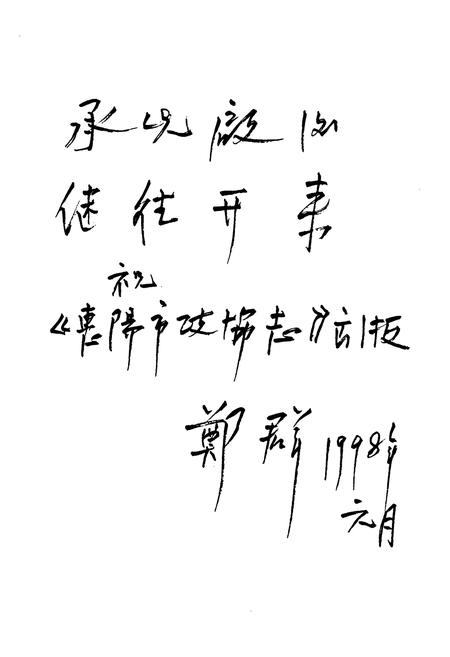 承先启后
继往开来
祝
《惠陽市政协志》出版
鄭群 1998年
元月